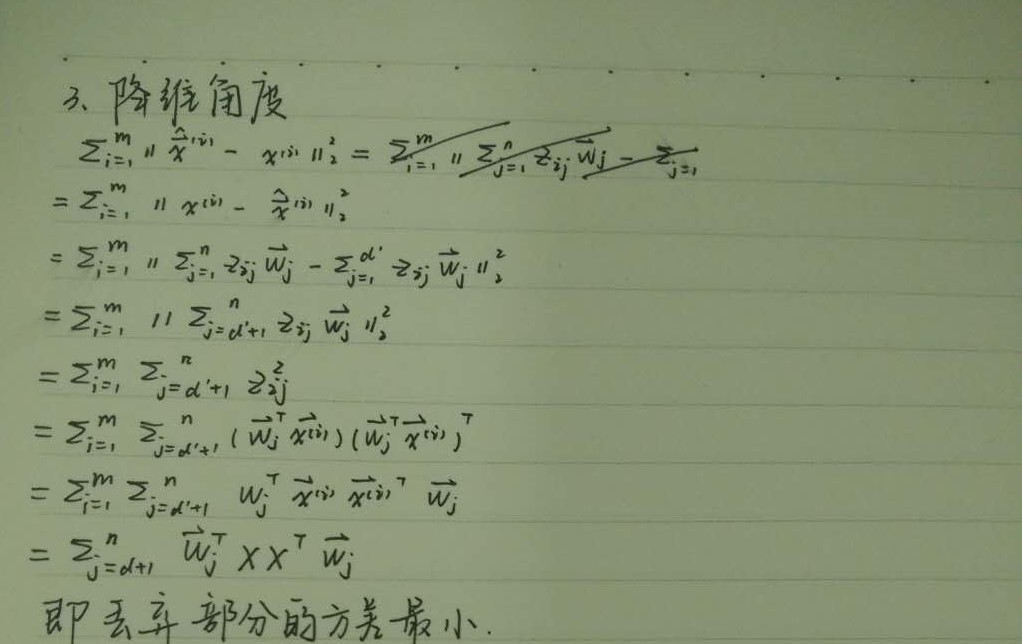 3、降维角度
∑ᵢ₌₁ᵐ ‖ x̂⁽ⁱ⁾ - x⁽ⁱ⁾ ‖₂² = ∑ᵢ₌₁ᵐ ‖ ∑ⱼ₌₁ⁿ zᵢⱼ w⃗ⱼ - ∑ⱼ₌₁
= ∑ᵢ₌₁ᵐ ‖ x⁽ⁱ⁾ - x̂⁽ⁱ⁾ ‖₂²
= ∑ᵢ₌₁ᵐ ‖ ∑ⱼ₌₁ⁿ zᵢⱼ w⃗ⱼ - ∑ⱼ₌₁^{d'} zᵢⱼ w⃗ⱼ ‖₂²
= ∑ᵢ₌₁ᵐ ‖ ∑_{j=d'+1}^{n} zᵢⱼ w⃗ⱼ ‖₂²
= ∑ᵢ₌₁ᵐ ∑_{j=d'+1}^{n} zᵢⱼ²
= ∑ᵢ₌₁ᵐ ∑_{j=d'+1}^{n} (w⃗ⱼᵀ x⃗⁽ⁱ⁾)(w⃗ⱼᵀ x⃗⁽ⁱ⁾)ᵀ
= ∑ᵢ₌₁ᵐ ∑_{j=d'+1}^{n} wⱼᵀ x⃗⁽ⁱ⁾ x⃗⁽ⁱ⁾ᵀ w⃗ⱼ
= ∑_{j=d+1}^{n} w⃗ⱼᵀ X Xᵀ w⃗ⱼ
即丢弃部分的方差最小.